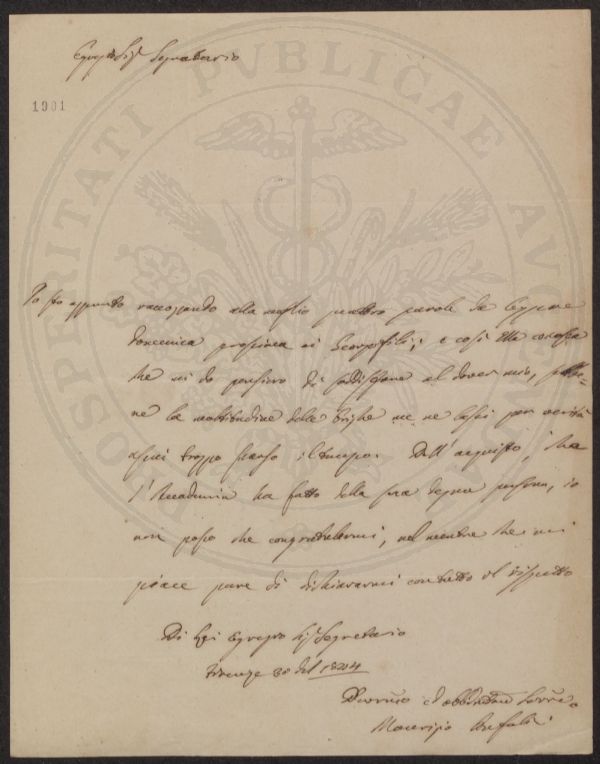 Egregio Sig.r Segretario
1901
PROSPERITATI PUBLICAE AUGENDAE
Io sto appunto raccozzando alla meglio quattro parole da leggere
domenica prossima ai Georgofili; e così Ella conosca
che mi do pensiero di soddisfare al dover mio,
ne la moltitudine delle brighe me ne lasci per verità
assai troppo scarso il tempo. Dell'acquisto, che
l'Accademia ha fatto della sua degna persona, io
non posso che congratularmi, nel mentre che mi
piace pure di dichiararmi con tutto il rispetto
Di Lei Egregio Sig.r Segretario
Firenze 30 del 1824
Devmo ed obbligatmo Servre
Maurizio Bufalini